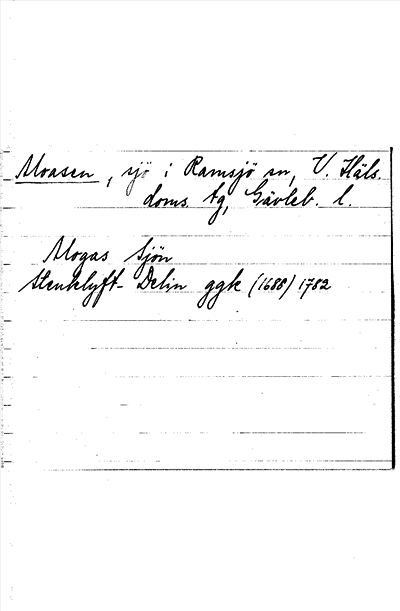 Moasen, sjö i Ramsjö sn, V. Häls.
doms. tg, Gävleb. l.
Mogas Sjön
Stenklyft- Delin ggk (1688) 1782